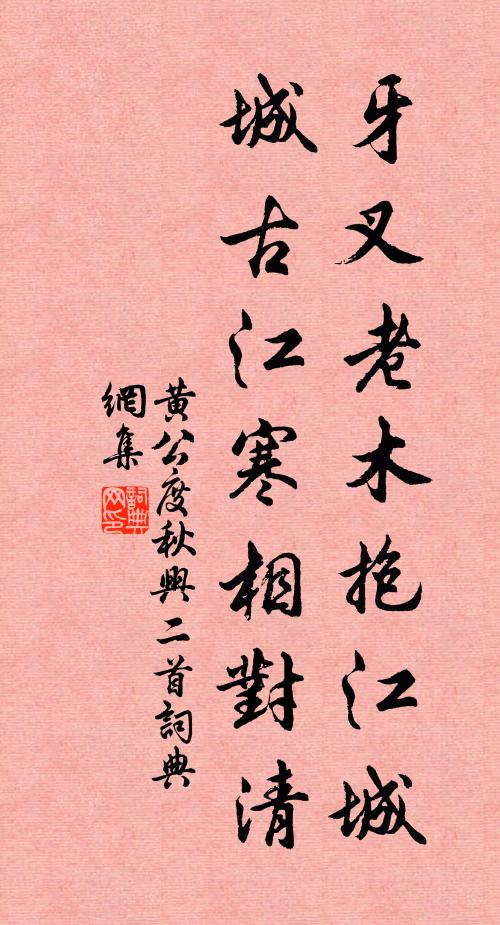 牙叉老木抱江城
城古江寒相對清
黃公度秋興二首詞典
網集
詞典
网印